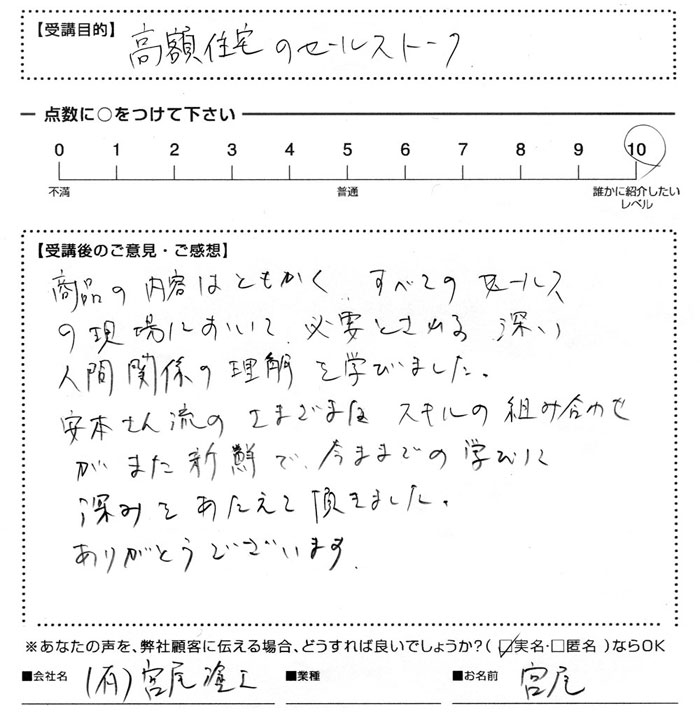 【受講目的】 高額住宅のセールストーク
点数に○をつけて下さい
0 1 2 3 4 5 6 7 8 9 10
不満 普通 誰かに紹介したい
レベル
【受講後のご意見・ご感想】
商品の内容はともかく、すべてのセールス
の現場において、必要とされる深い
人間関係の理解を学びました。
安本さん流のさまざまなスキルの組み合わせ
がまた新鮮で、今までの学びに
深みをあたえて頂きました。
ありがとうございます。
※あなたの声を、弊社顧客に伝える場合、どうすれば良いでしょうか?(☑実名・□匿名)ならOK
■会社名 (有)宮尾塗工 ■業種 ■お名前 宮尾